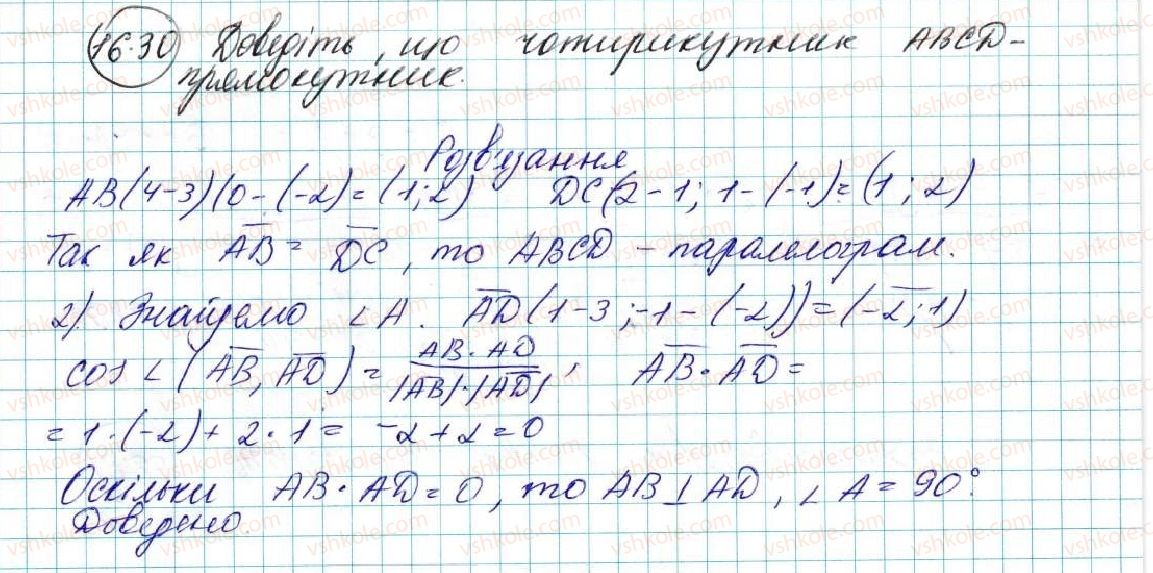 16.30 Доведіть, що чотирикутник ABCD-
прямокутник.
Розв'язання
AB(4-3)(0-(-2)=(1;2) DC(2-1; 1-(-1)=(1;2)
Так як AB = DC, то ABCD - паралелограм.
2) Знайдемо ∠A. AD(1-3;-1-(-2))=(-2;1)
cos∠(AB, AD)= AB·AD / |AB|·|AD| ; AB·AD=
=1·(-2)+2·1= -2+2=0
Оскільки AB·AD=0, то AB⊥AD, ∠A=90°.
Доведено.